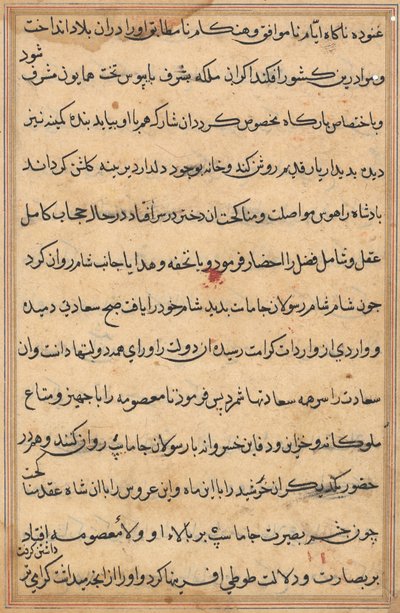 غنوده ناگاه ایّام ناموافق و هنگام نامطابق او را در ان بلاد انداخت
و موا درین کشور افکند اکر ان ملکه بشرف پابوس تخت همایون مشرف شود
و باختصاص بارگاه مخصوص کردد ان شارک هم با او بیاید بنده کمینه نیز
دیده بدیدار یار قدیم روشن کند و خانه بوجود دلدار دیرینه کلشن کرداند
پادشاه را هوس مواصلت و مناکحت ان دختر در سر افتاد در حال حجاب کامل
عقل و شامل فضل را احضار فرمود و با تحفه و هدایا جانب شام روان کرد
چون شام رسولان جامات بدید شار خود را یافت صبح سعادتی دمیده
و واردی از واردات کرامت رسیده ان دولت را ورای همه دولتها دانست و ان
سعادت را سرهمه سعادتها شمرد پس فرمود تا معصومه را با جهیز و متاع
ملوکانه و خزاین و دفاین خسروانه با رسولان جاماسپ روان کنند و هم در
حضور یکدیکر ان خرشید را با این ماه و این عروس را با ان شاه عقد مناکحت
چون چشم بصیرت جاماسپ بر بالاء او و ولاء معصومه افتاد
بر بصارت و دلالت طوطی افرینها کرد و او را از انچه میداشت کرامی تر
داشتن کرفت